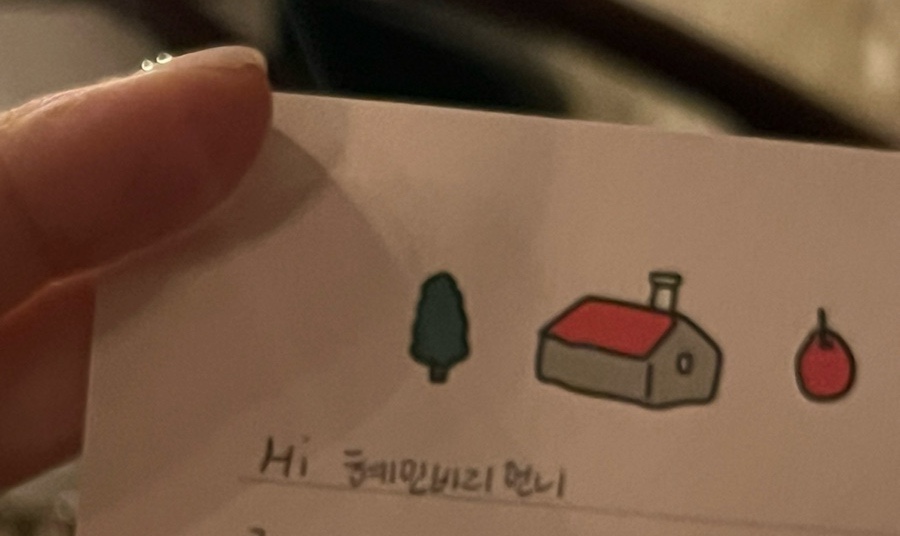 Hi 혜민비리언니